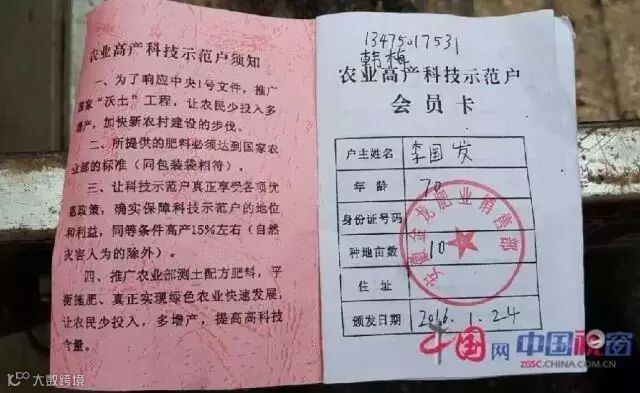 农业高产科技示范户须知
一、为了响应中央1号文件，推广
国家“沃土”工程，让农民少投入多
增产，加快新农村建设的步伐。
二、所提供的肥料必须达到国家农
业部的标准（同包装袋相待）。
三、让科技示范户真正享受各项优
惠政策；确实保障科技示范户的地位
和利益，同等条件高产15%左右（自然
灾害人为的除外）。
四、推广农业部测土配方肥料，平
衡施肥、真正实现绿色农业快速发展；
让农民少投入，多增产，提高高科技
含量。
13475017531
韩梅
农业高产科技示范户
会员卡
户主姓名 李国发
年龄 70
身份证号码
种地亩数 10
住址
颁发日期 2016.1.24
肥业销售部
中国网 中国视窗
ZGSC.CHINA.COM.CN
10100 大数跨境